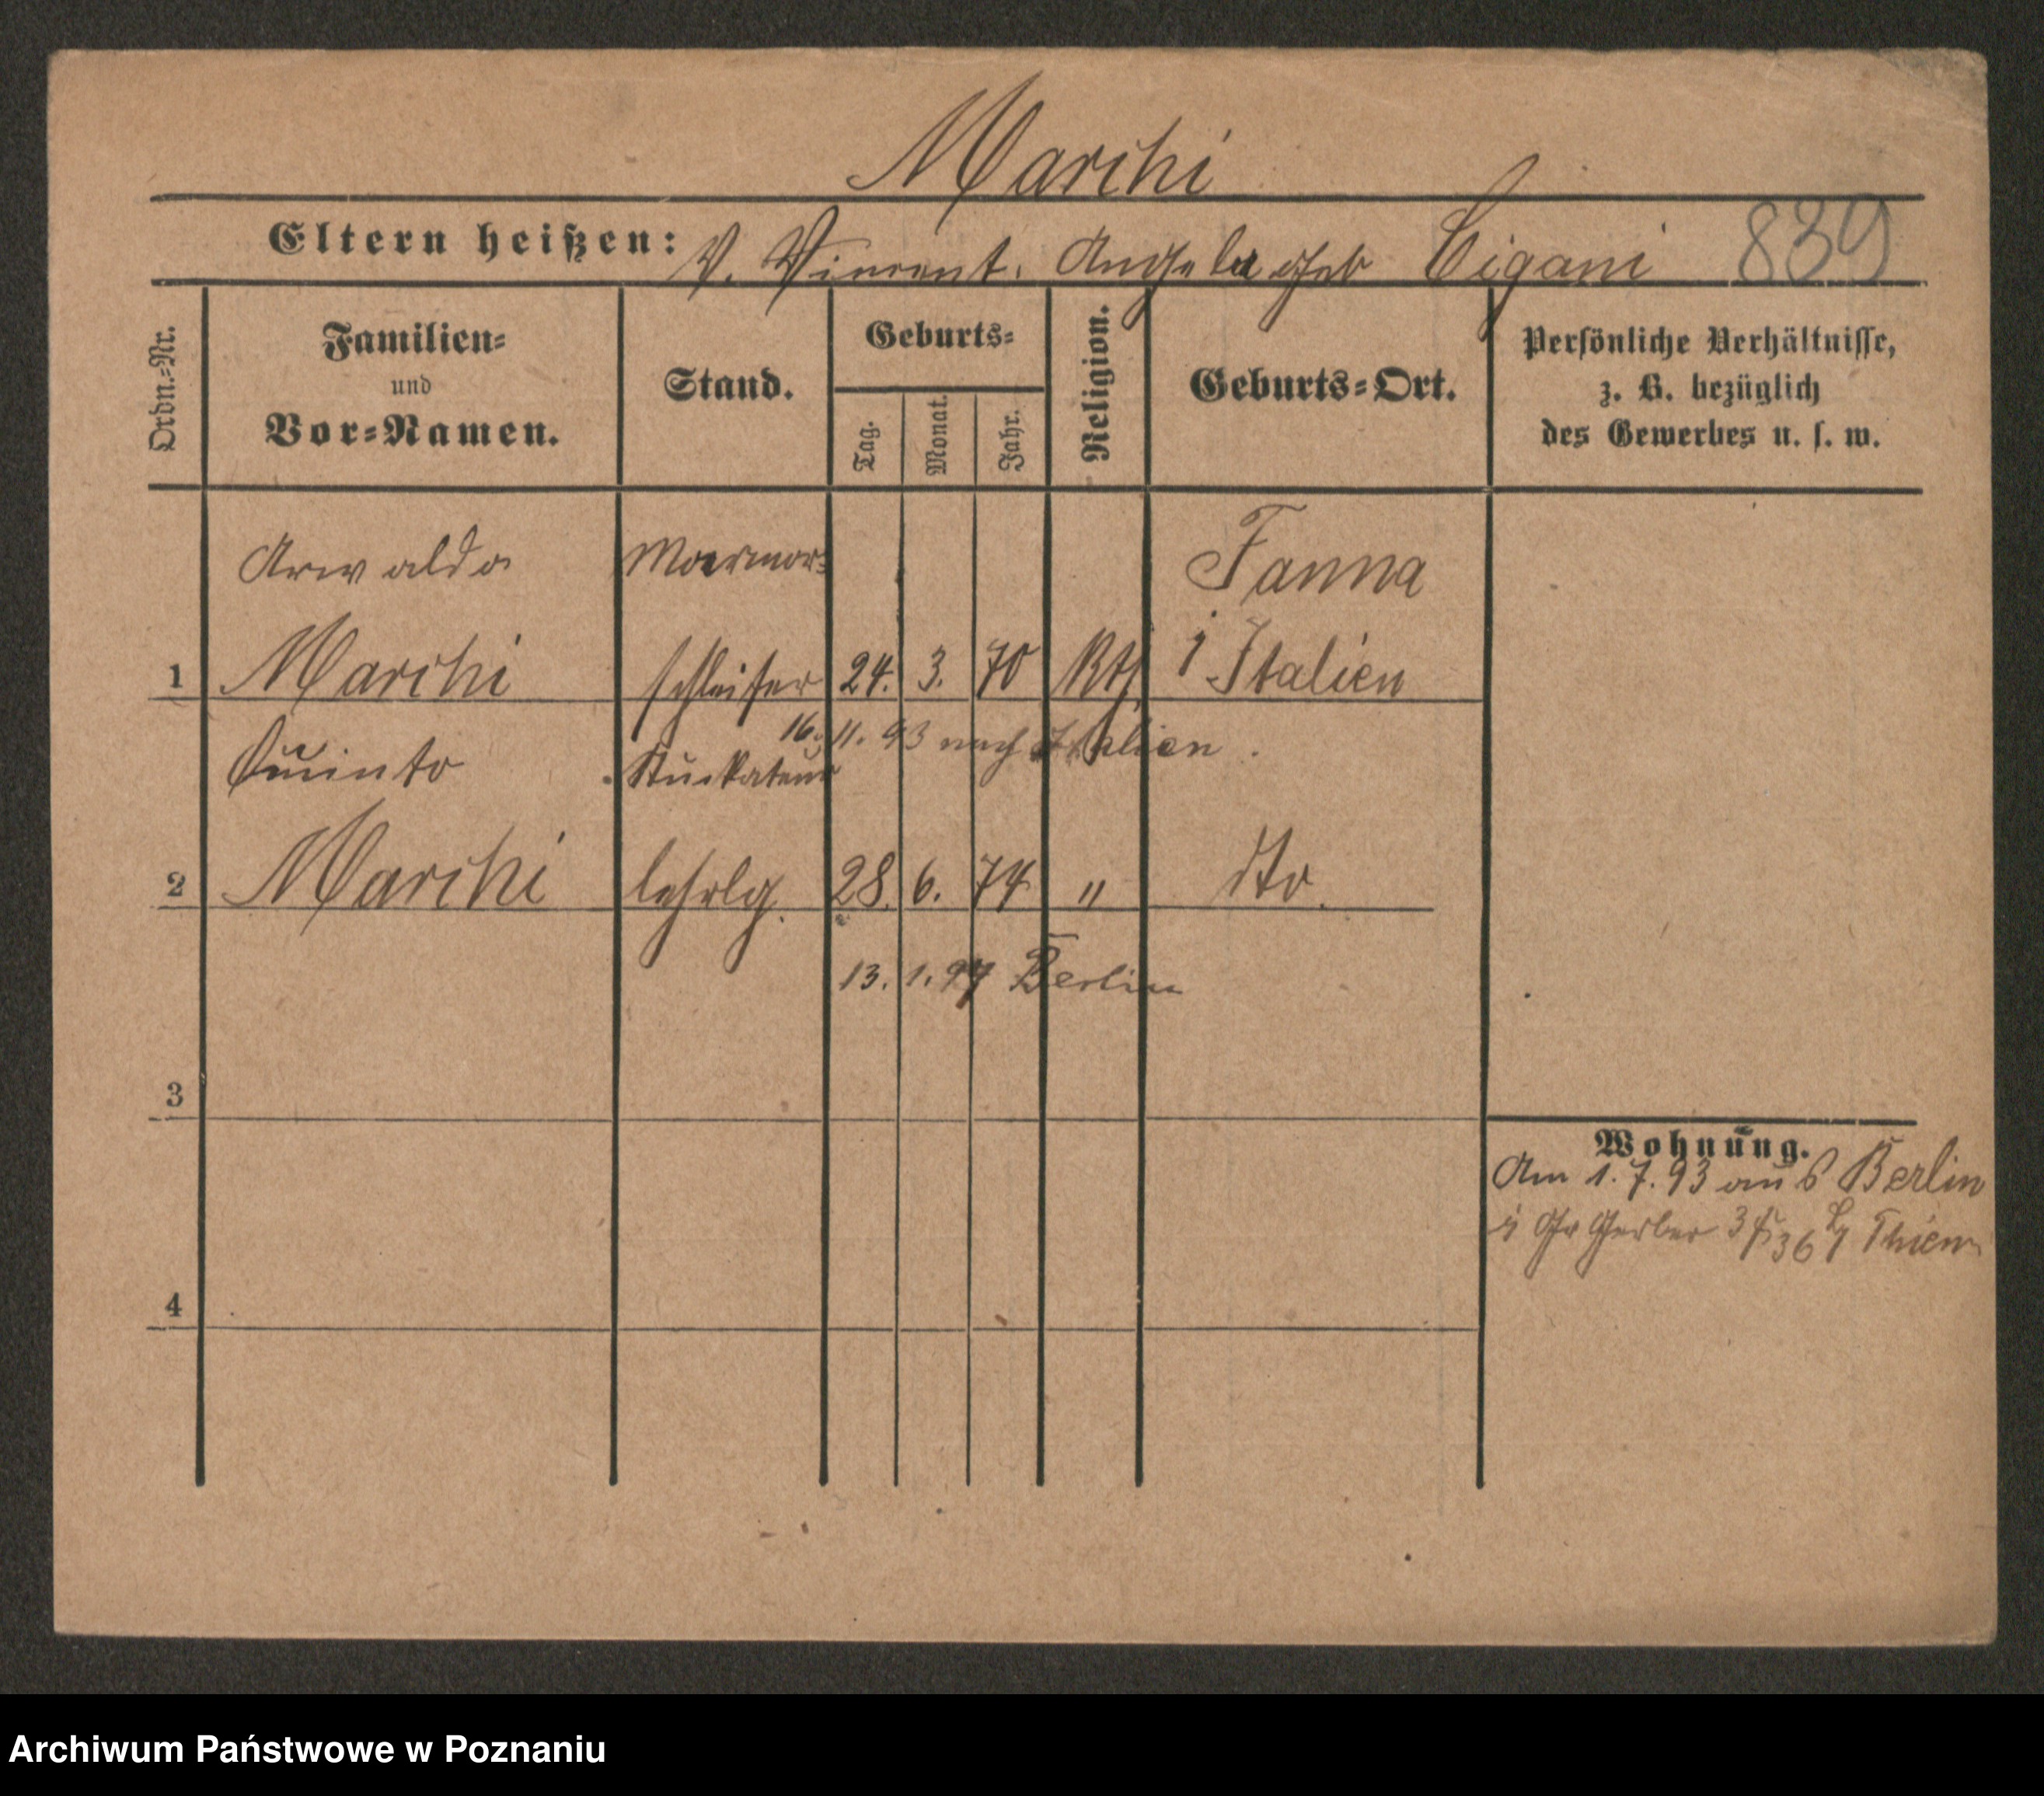 Marchi
Eltern heißen: V. Vincent. Angela geb Cigani 839
Ordn.-Nr.
Familien- und Vor-Namen.
Stand.
Geburts-
Tag. Monat. Jahr.
Religion.
Geburts-Ort.
Persönliche Verhältnisse,
z. B. bezüglich
des Gewerbes u. s. w.
Arwaldo Marmor- Fanna
1 Marchi schleifer 24. 3. 70 Kth i Italien
16. 11. 93 nach Italien.
Quinto Stuckateur
2 Marchi lehrlg. 28. 6. 74 " dto.
13. 1. 97 Berlin
3
Wohnung.
Am 1. 7. 93 aus Berlin
i Gr Gerber 36 Thiem
4
Archiwum Państwowe w Poznaniu